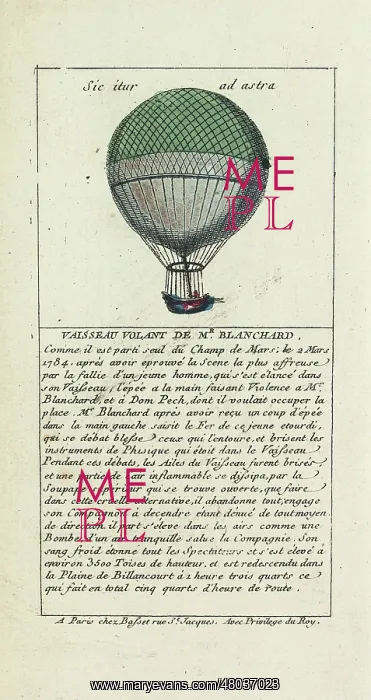 Sic itur ad astra
ME
PL
VAISSEAU VOLANT DE M.R BLANCHARD,
Comme il est parti seul du Champ de Mars, le 2 Mars
1784. aprés avoir eprouvé la Scene la plus affreuse
par la follie d'un jeune homme, qui s'est élancé dans
son Vaisseau, l'épée a la main faisant Violence a M.r
Blanchard, et à Dom Pech, dont il voulait occuper la
place. M.r Blanchard aprés avoir reçu un coup d'épée
dans la main gauche saisit le Fer de ce jeune etourdi,
qui se débat blesse ceux qui l'entoure, et brisent les
instruments de Phisique qui étoit dans le Vaisseau
Pendant ces débats, les Ailes du Vaisseau furent brisés,
et une partie de l'air inflammable se dissipa, par la
Soupape qui se trouve ouverte, que faire
dans cette cruelle alternative, il abandonne tout, engage
son à decendre etant dénué de tout moyen
de direction, il part s'eleve dans les airs comme une
Bombe, d'un air tranquille salue la Compagnie. Son
sang froid étonne tout les Spectateurs et s'est elevé à
environ 3500 Toises de hauteur, et est redescendu dans
la Plaine de Billancourt à 2 heure trois quarts ce
qui fait en total cinq quarts d'heure de route.
ME
PL
A Paris chez Basset rue S.t Jacques. Avec Privilege du Roy.
www.maryevans.com/48037023